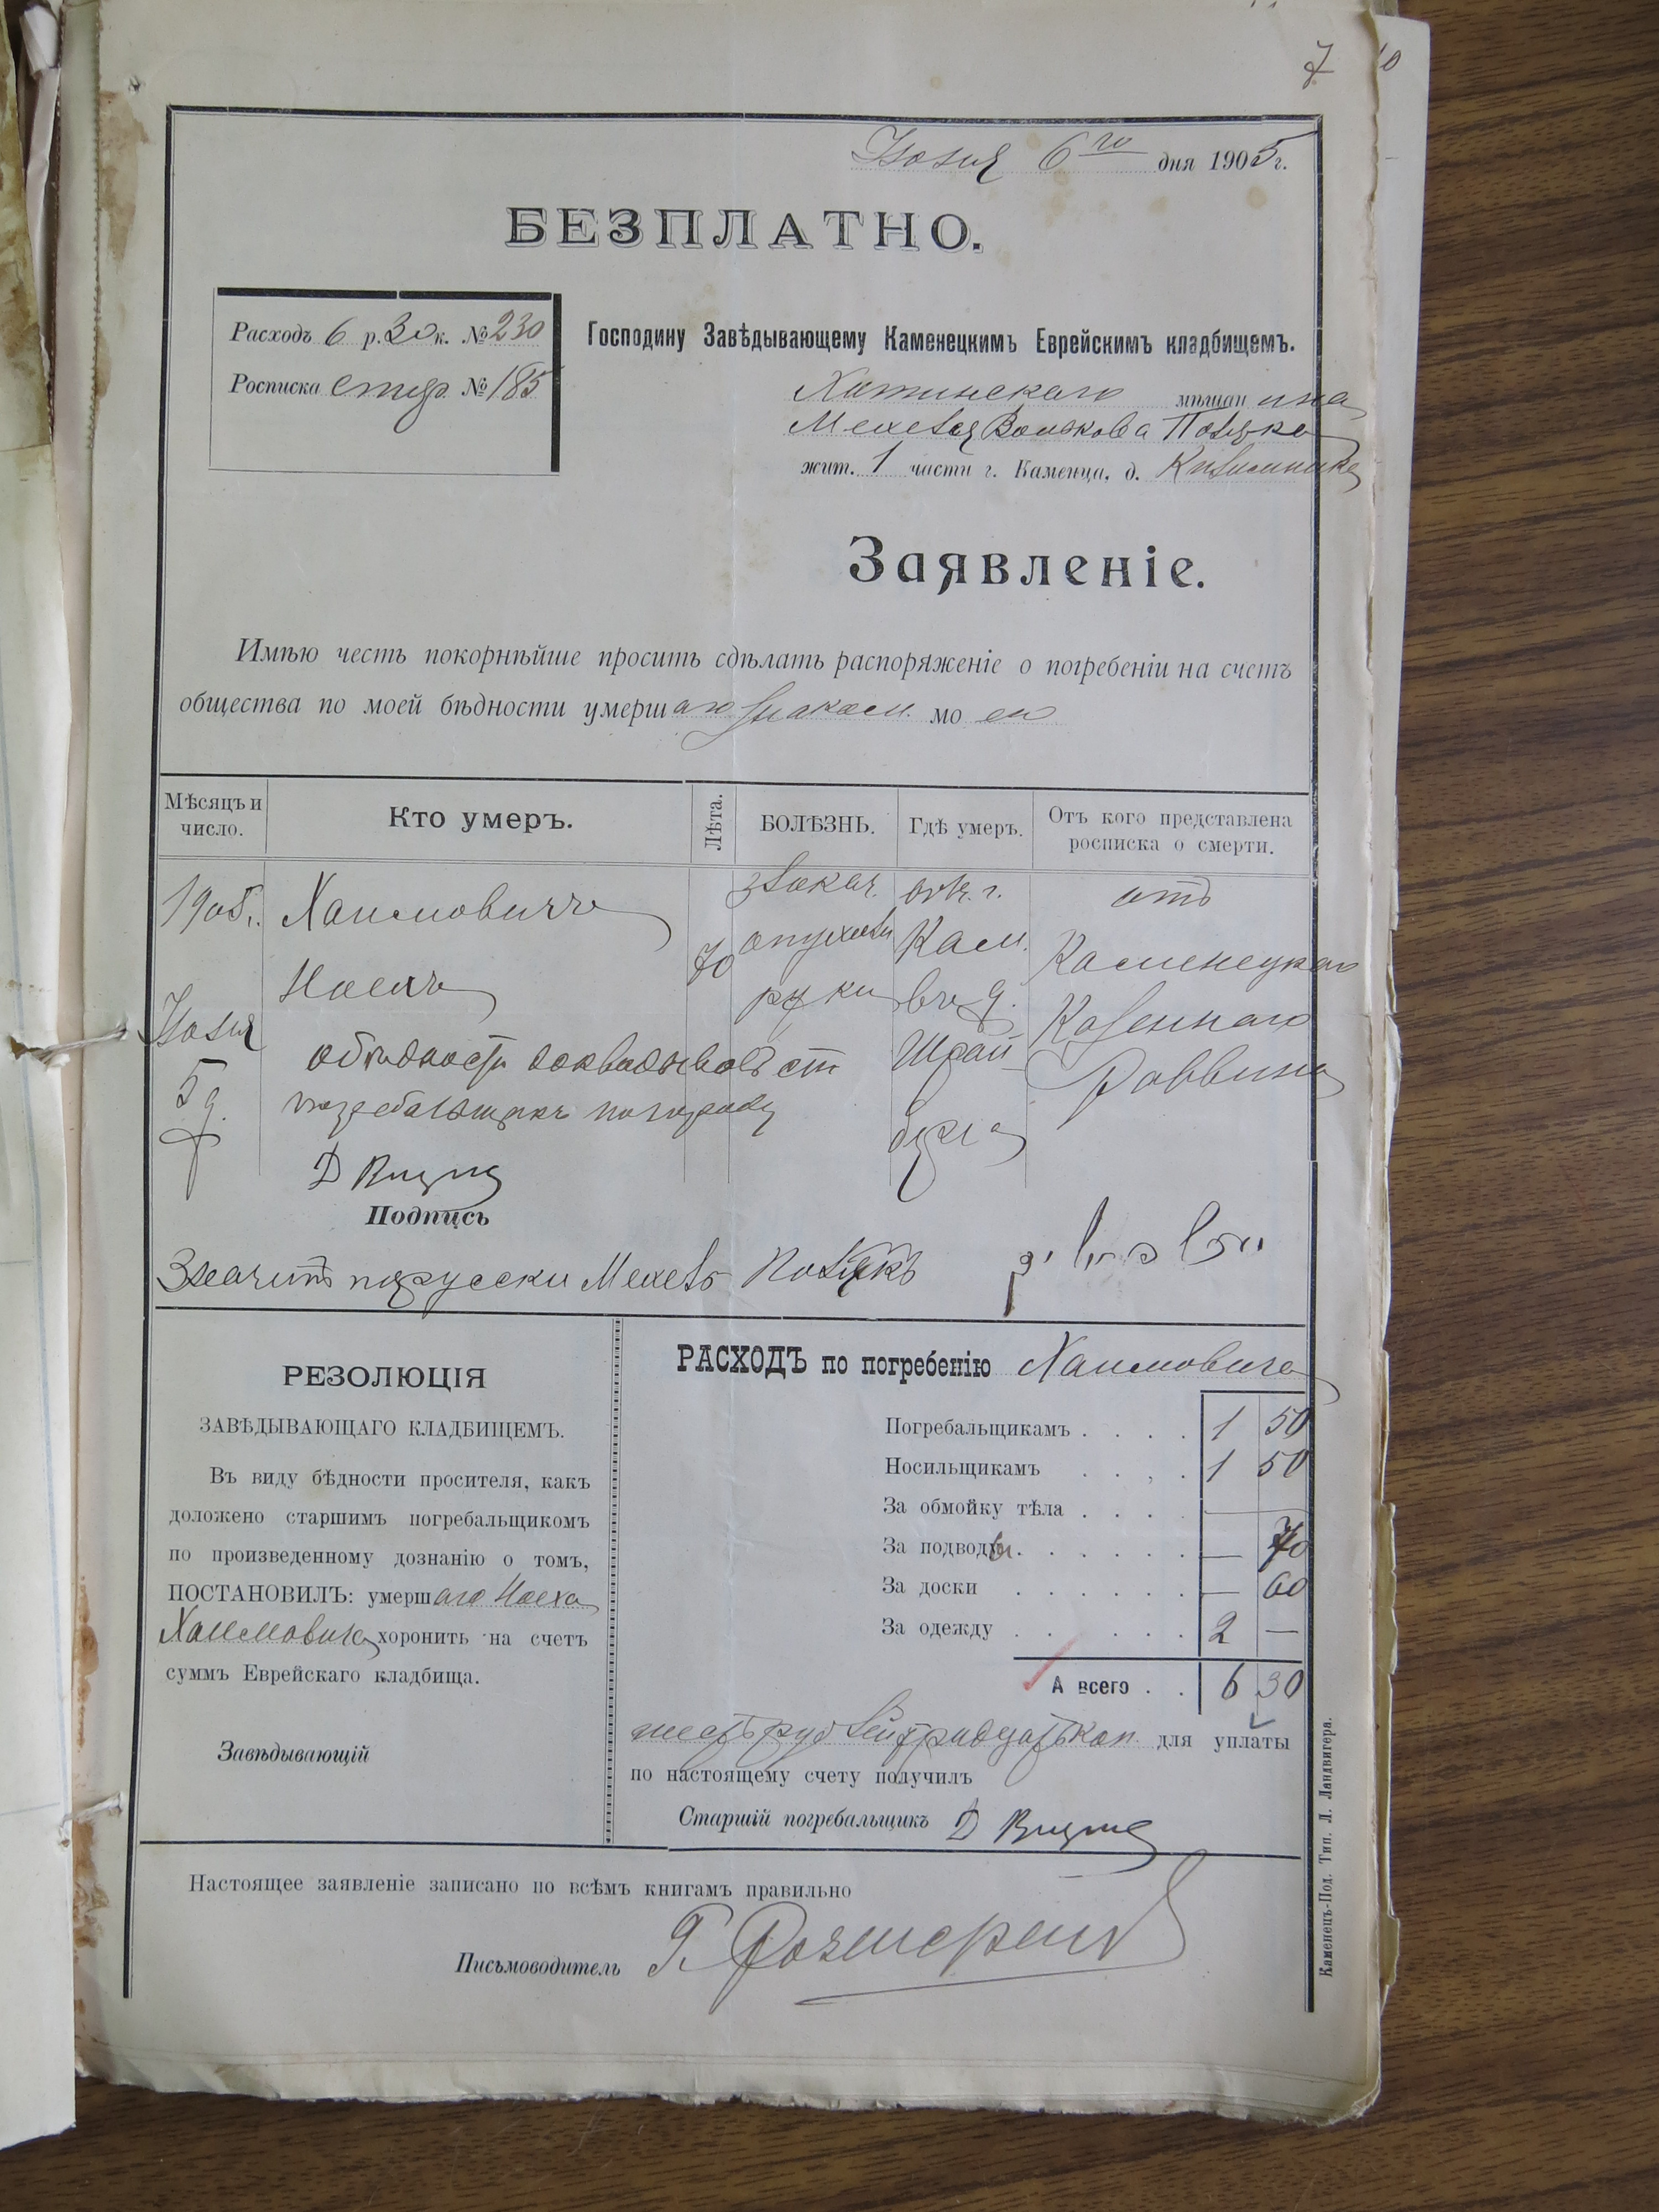 7
10
Іюля 6го дня 1905 г.
БЕЗПЛАТНО.
Расходъ 6 р. 30 к. № 230
Росписка стар. № 185
Господину Завѣдывающему Каменецкимъ Еврейскимъ кладбищемъ.
Хотинскаго мѣщанина
Мехеля Волькова
жит. 1 части г. Каменца, д.
Заявленіе.
Имѣю честь покорнѣйше просить сдѣлать распоряженіе о погребеніи на счетъ
общества по моей бѣдности умершаго знаком. моего
Мѣсяцъ и число.
Кто умеръ.
Лѣта.
БОЛѢЗНЬ.
Гдѣ умеръ.
Отъ кого представлена росписка о смерти.
1905 г.
Іюля
5 д.
Хаимовичъ
70
опухоли
руки
Кам.
въ д.
отъ
Каменецкаго
Казеннаго
Раввина
погребальщикъ
Подпись
Значитъ по русски Мехель
РЕЗОЛЮЦІЯ
ЗАВѢДЫВАЮЩАГО КЛАДБИЩЕМЪ.
Въ виду бѣдности просителя, какъ
доложено старшимъ погребальщикомъ
по произведенному дознанію о томъ,
ПОСТАНОВИЛЪ: умершаго
Хаимовича хоронить на счетъ
суммъ Еврейскаго кладбища.
Завѣдывающій
РАСХОДЪ по погребенію Хаимовича
Погребальщикамъ . . . . 1 50
Носильщикамъ . . . . 1 50
За обмойку тѣла . . . .
За подводы . . . . . . — 70
За доски . . . . . . — 60
За одежду . . . . . . 2 —
А всего . . 6 30
шесть рублей тридцать коп. для уплаты
по настоящему счету получилъ
Старшій погребальщикъ
Настоящее заявленіе записано по всѣмъ книгамъ правильно
Письмоводитель
Каменецъ-Под. Тип. Л. Ландвигера.